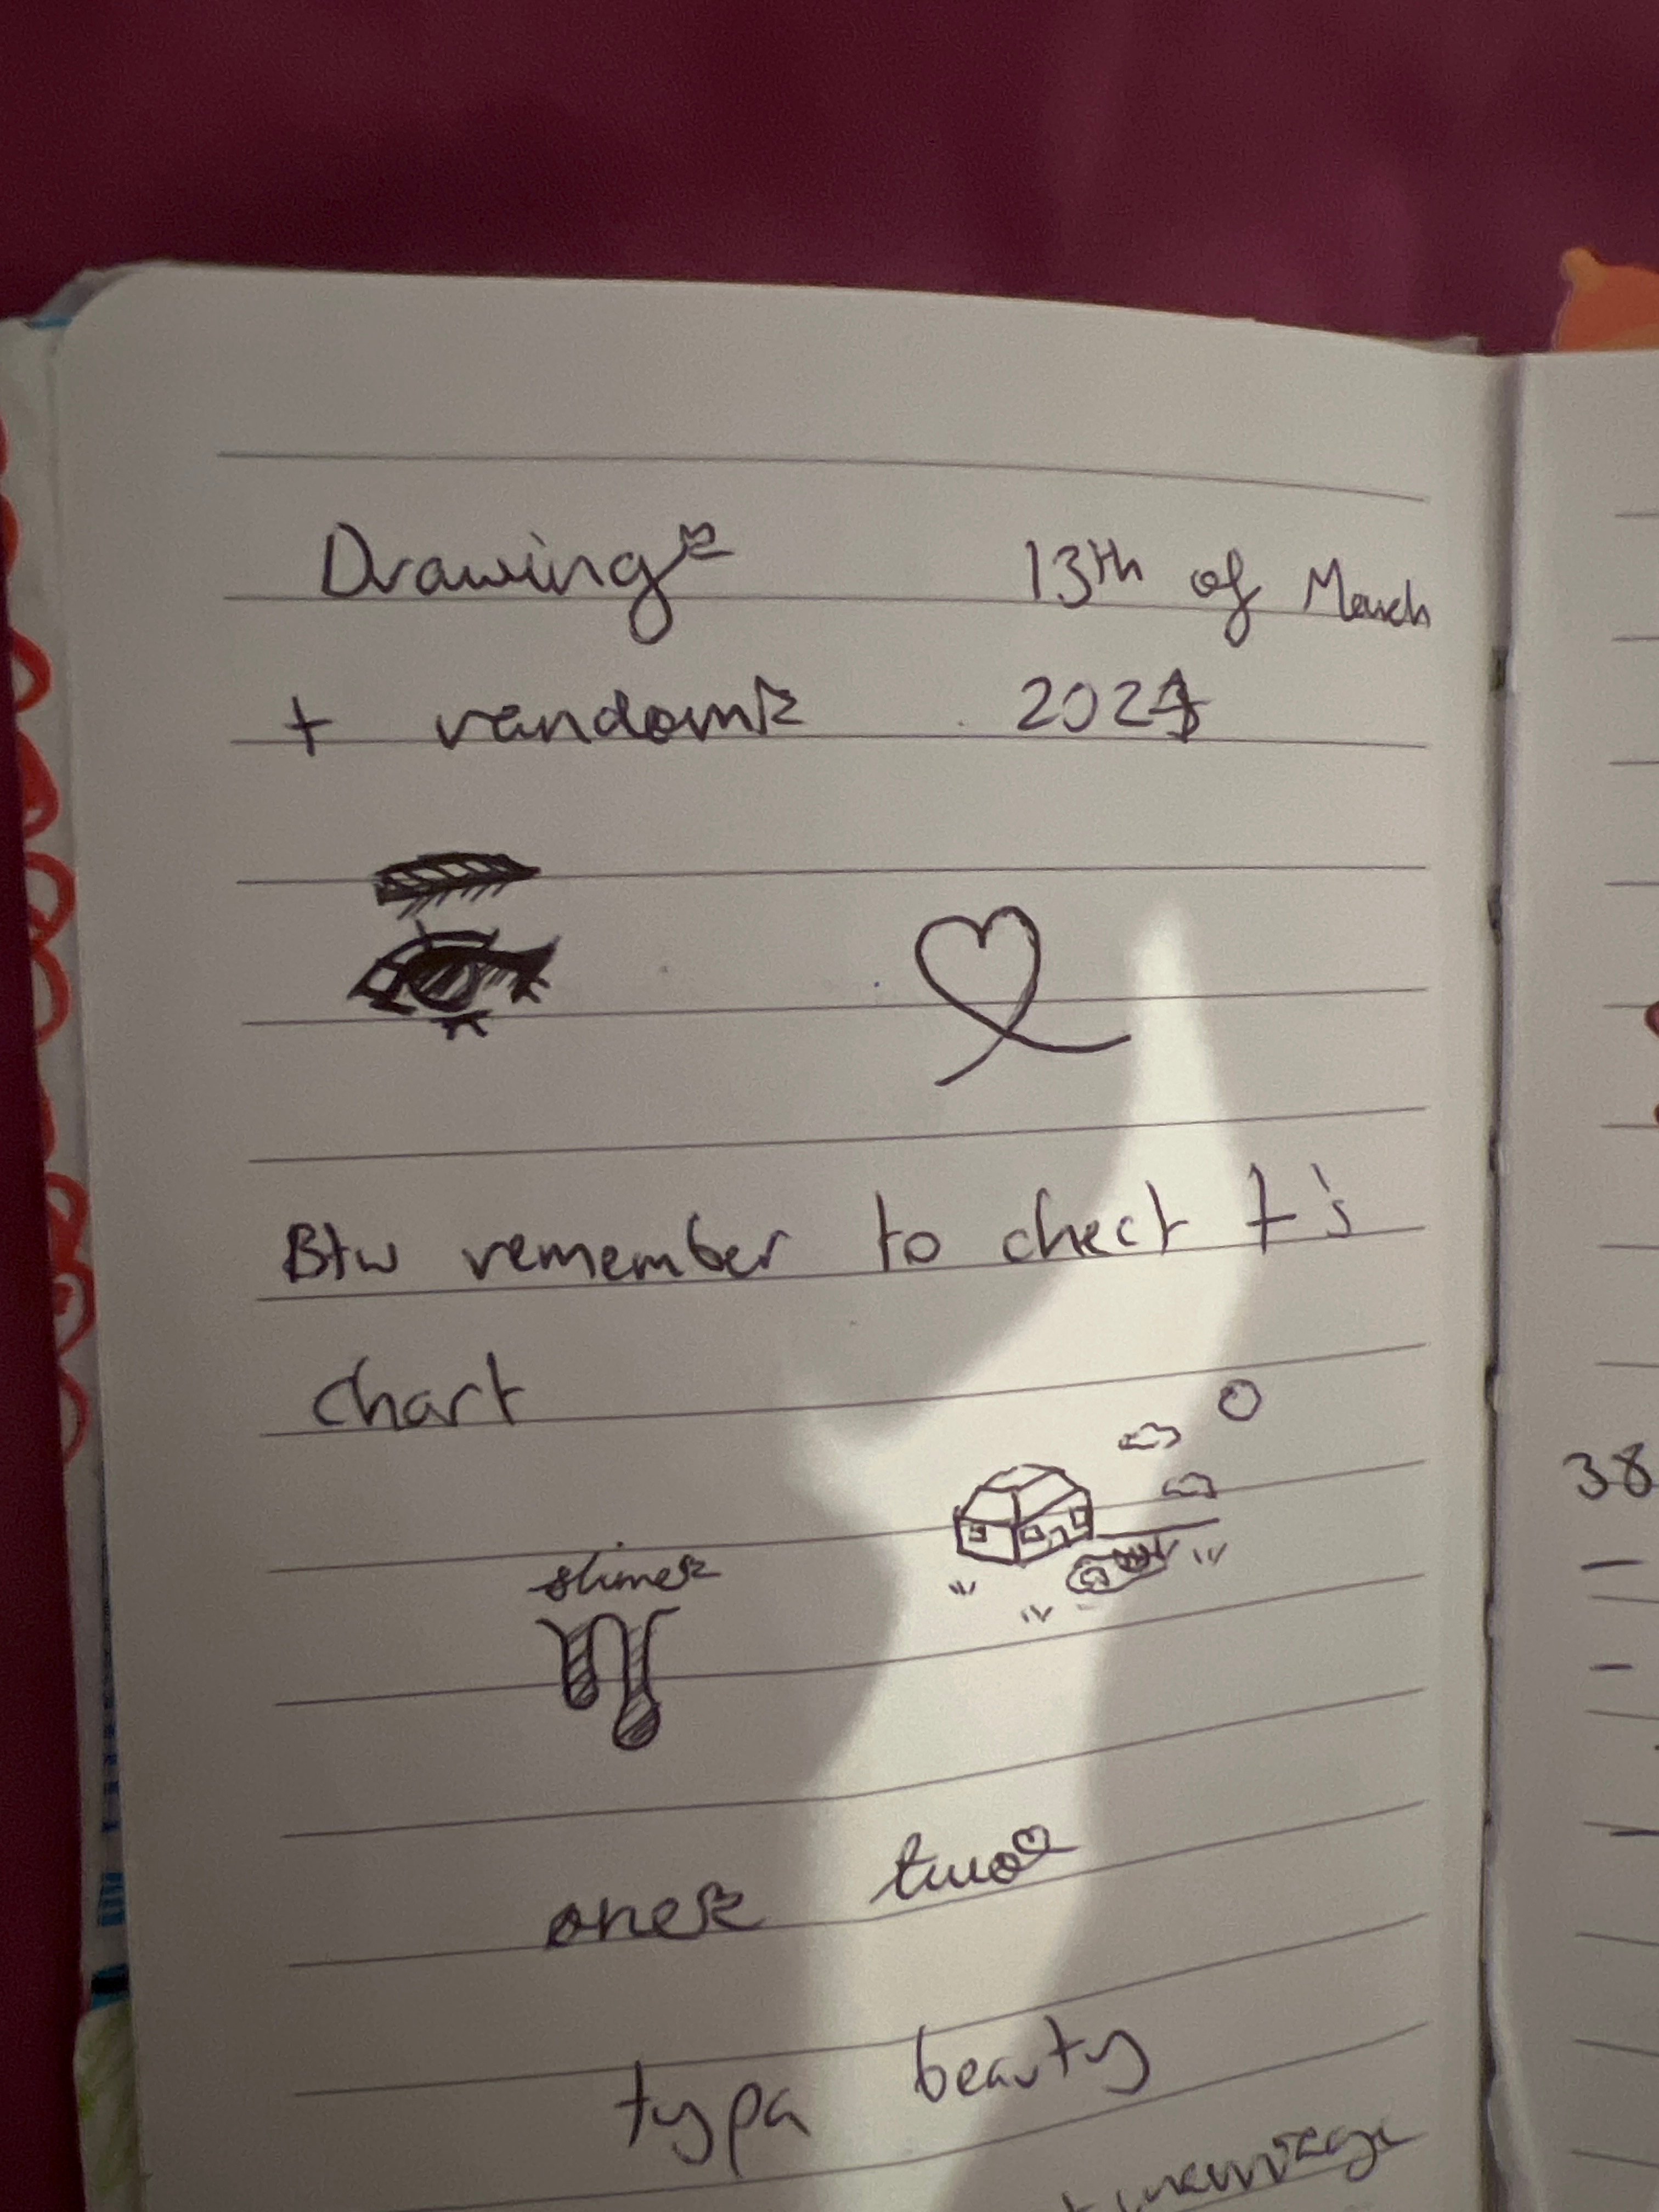 Drawings 13th of March
+ randoms 2024
Btw remember to check t's
chart
slimes
ones two
typa beauty
marriage
38